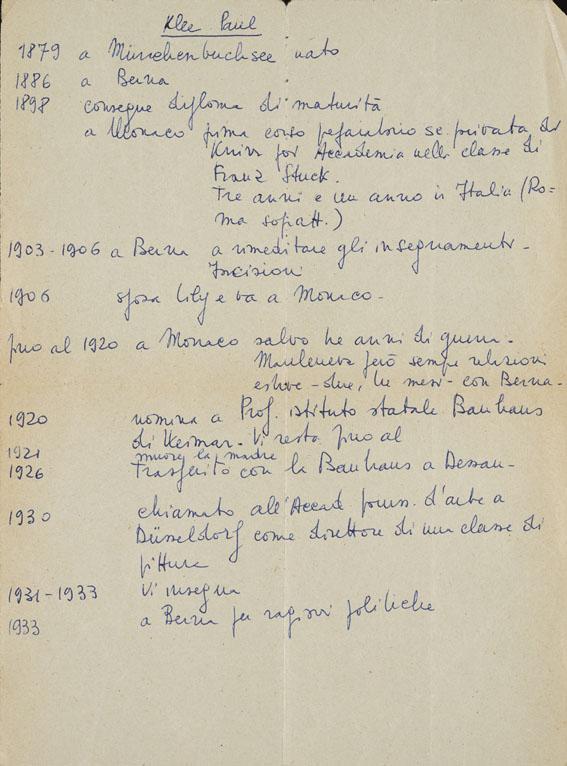 Klee Paul
1879 a Münchenbuchsee nato
1886 a Berna
1898 consegue diploma di maturità
a Monaco prima corso preparatorio sc. privata di
Knirr per Accademia nella classe di
Franz Stuck.
Tre anni e un anno in Italia (Ro-
ma sopratt.)
1903-1906 a Berna a rimeditare gli insegnamenti -
Incisioni
1906 sposa Lily e va a Monaco -
fino al 1920 a Monaco salvo tre anni di guerra -
Manteneva però sempre relazioni
estive - due, tre mesi - con Berna -
1920 nomina a Prof. istituto statale Bauhaus
di Weimar - Vi resta fino al
1921 muore la madre
1926 Trasferito con la Bauhaus a Dessau -
1930 chiamato all'Accad pruss. d'arte a
Düsseldorf come direttore di una classe di
pittura
1931-1933 Vi insegna
1933 a Berna per ragioni politiche